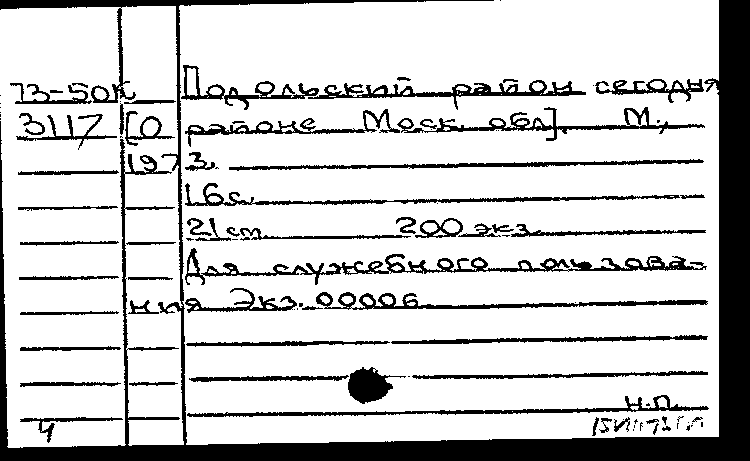 73-50к Подольский район сегодня
3117 [О районе Моск. обл]. М.,
1973.
16с.
21 cm 200 экз.
Для служебного пользова-
ния Экз. 00006
н.п.
4